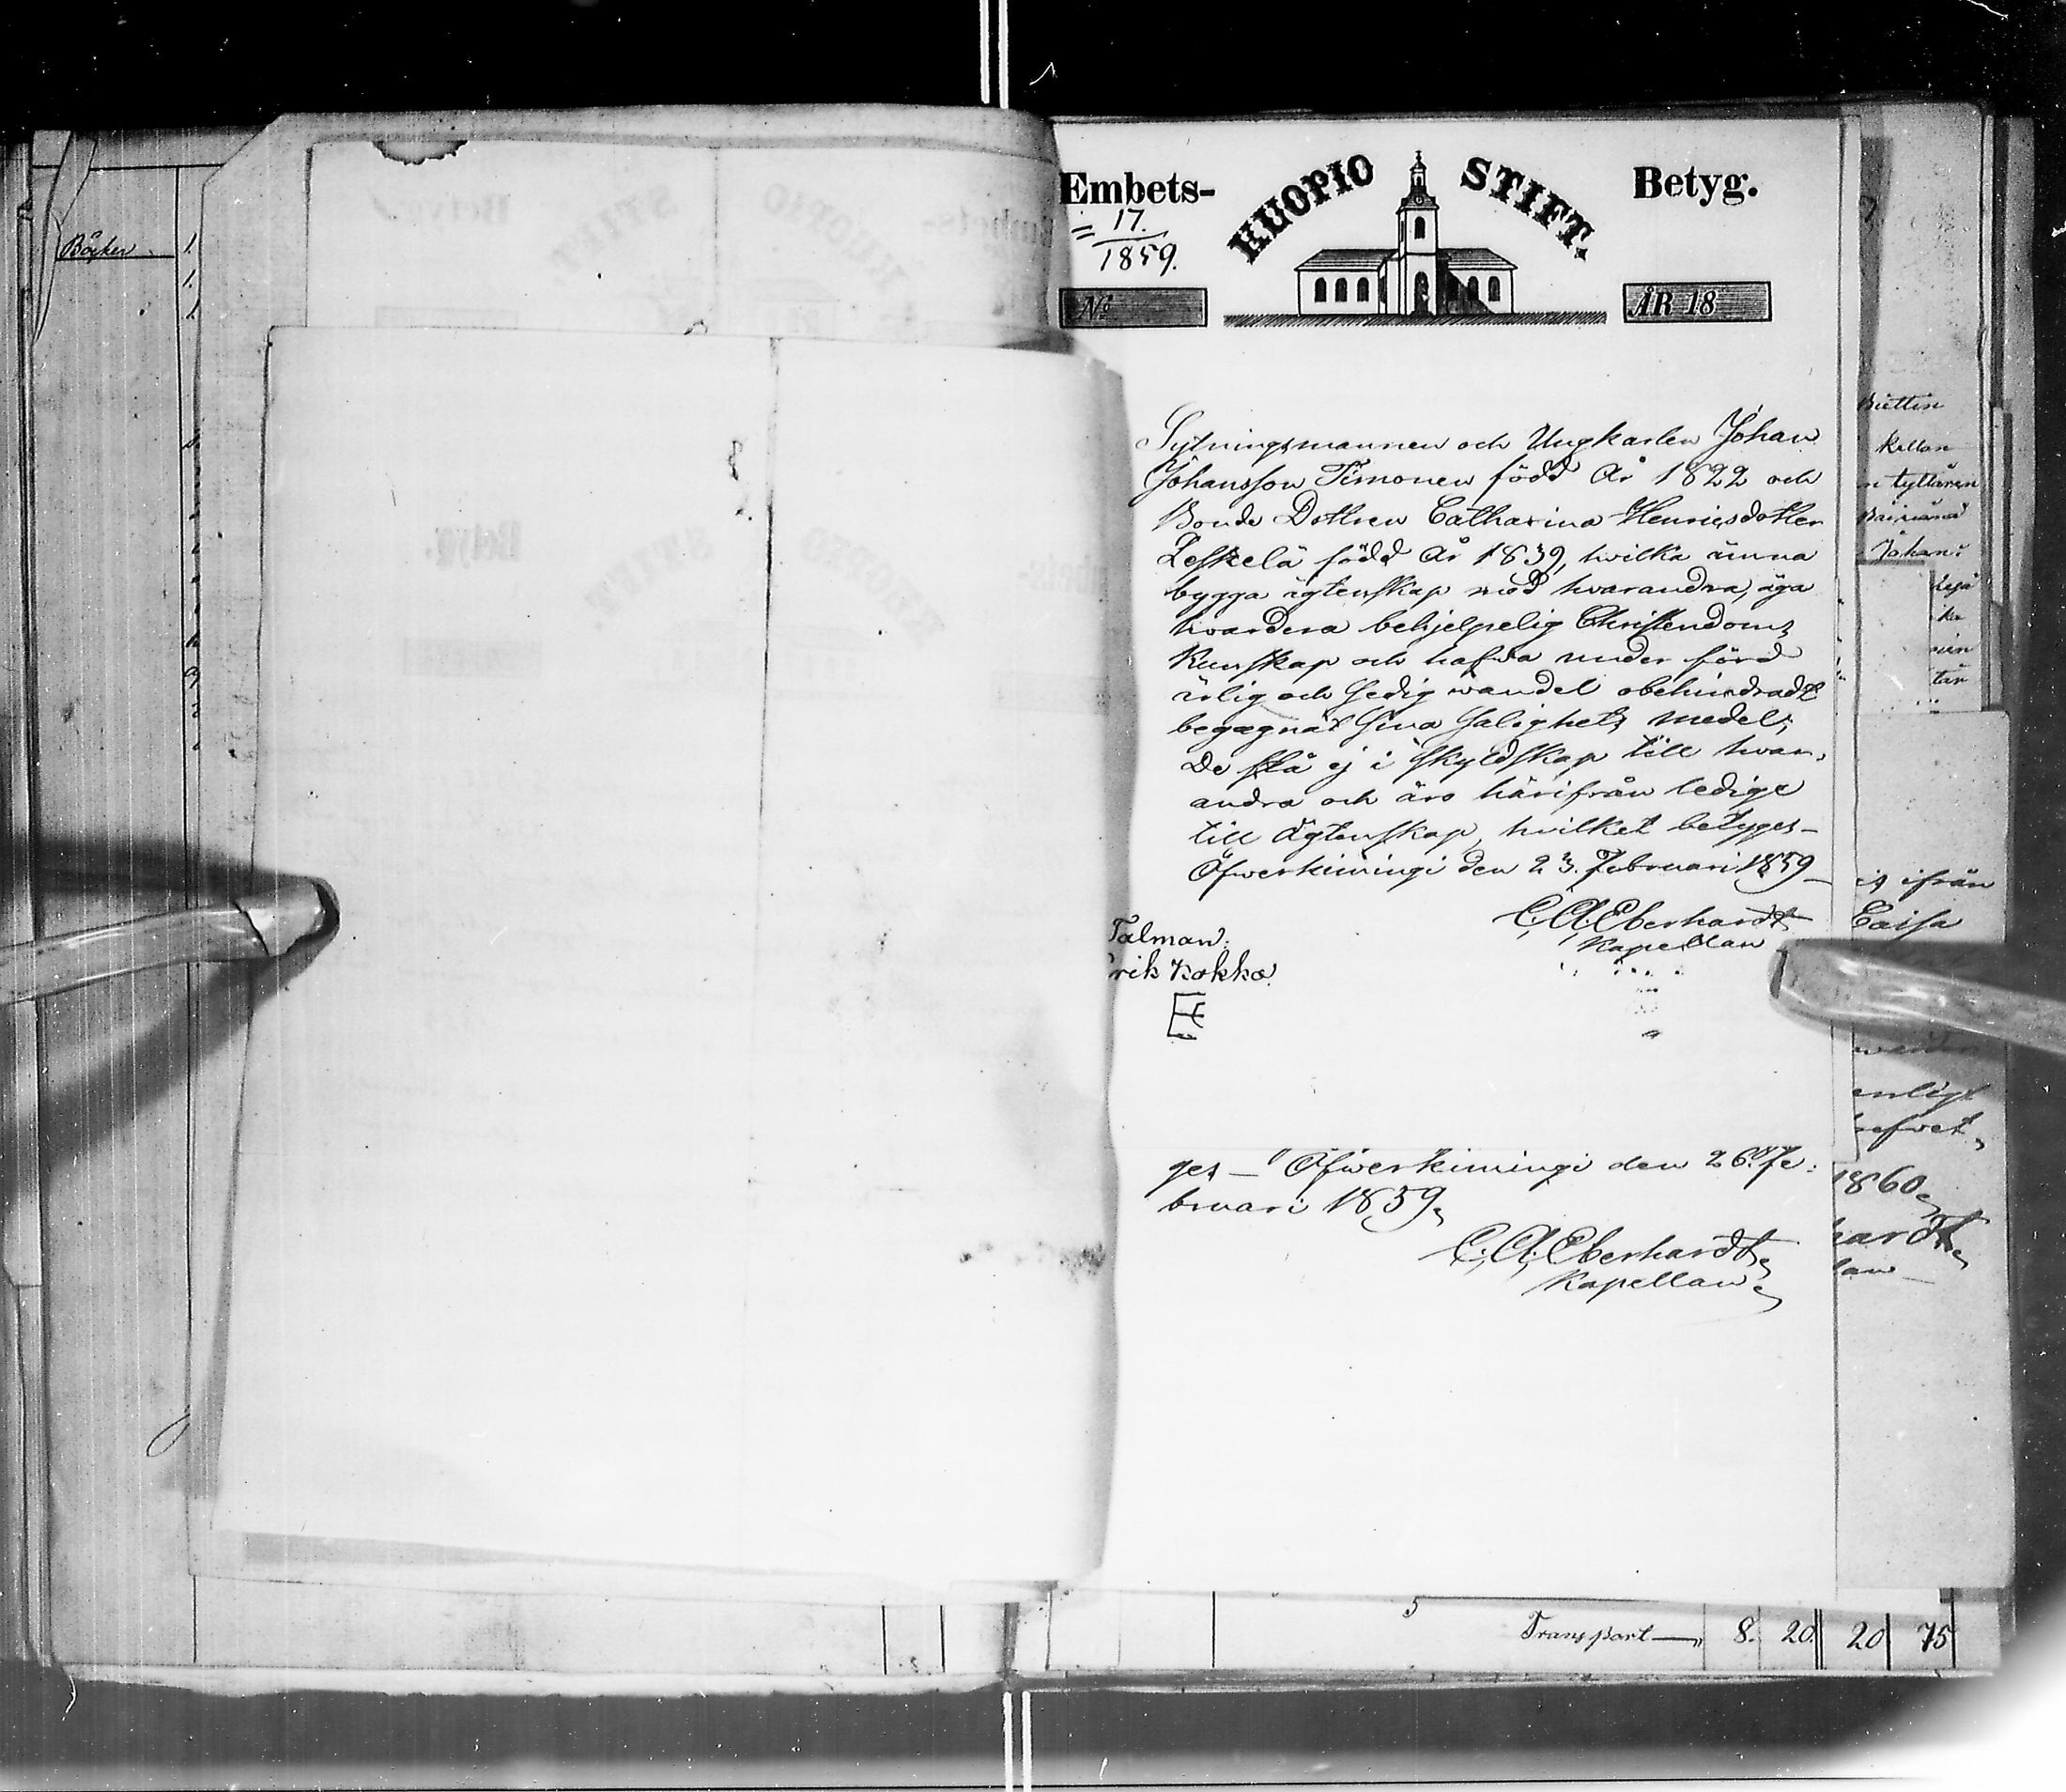 Böcker
Embets-
KUOPIO STIFT.
Betyg.
17.
1859.
No
ÅR 18
Sytningsmannen och Ungkarlen Johan
Johansson Timonen född År 1822 och
Bonde Dottren Catharina Henricsdotter
Leskelä född År 1839, hvilka ämna
bygga ägtenskap med hvarandra, äga
hvardera behjelpelig Christendoms
Kunskap och hafva under förd
ärlig och sedig wandel obehindradt
begagnat sina salighets medel;
De stå ej i skyldskap till hvar-
andra och äro härifrån ledige
till ägtenskap, hvilket betyges_
Öfwerkiimingi den 23. Februari 1859_
C. A. Eberhardt
Kapellan
Talman:
rik Kokko.
ges_ Öfwerkiimingi den 26. Fe-
bruari 1859.
C. A. Eberhardt
Kapellan
kellan
tyttären
Johan:
tän
ifrån
Caisa
enligt
1860
hardt
lan
Transport 8. 20. 20 75